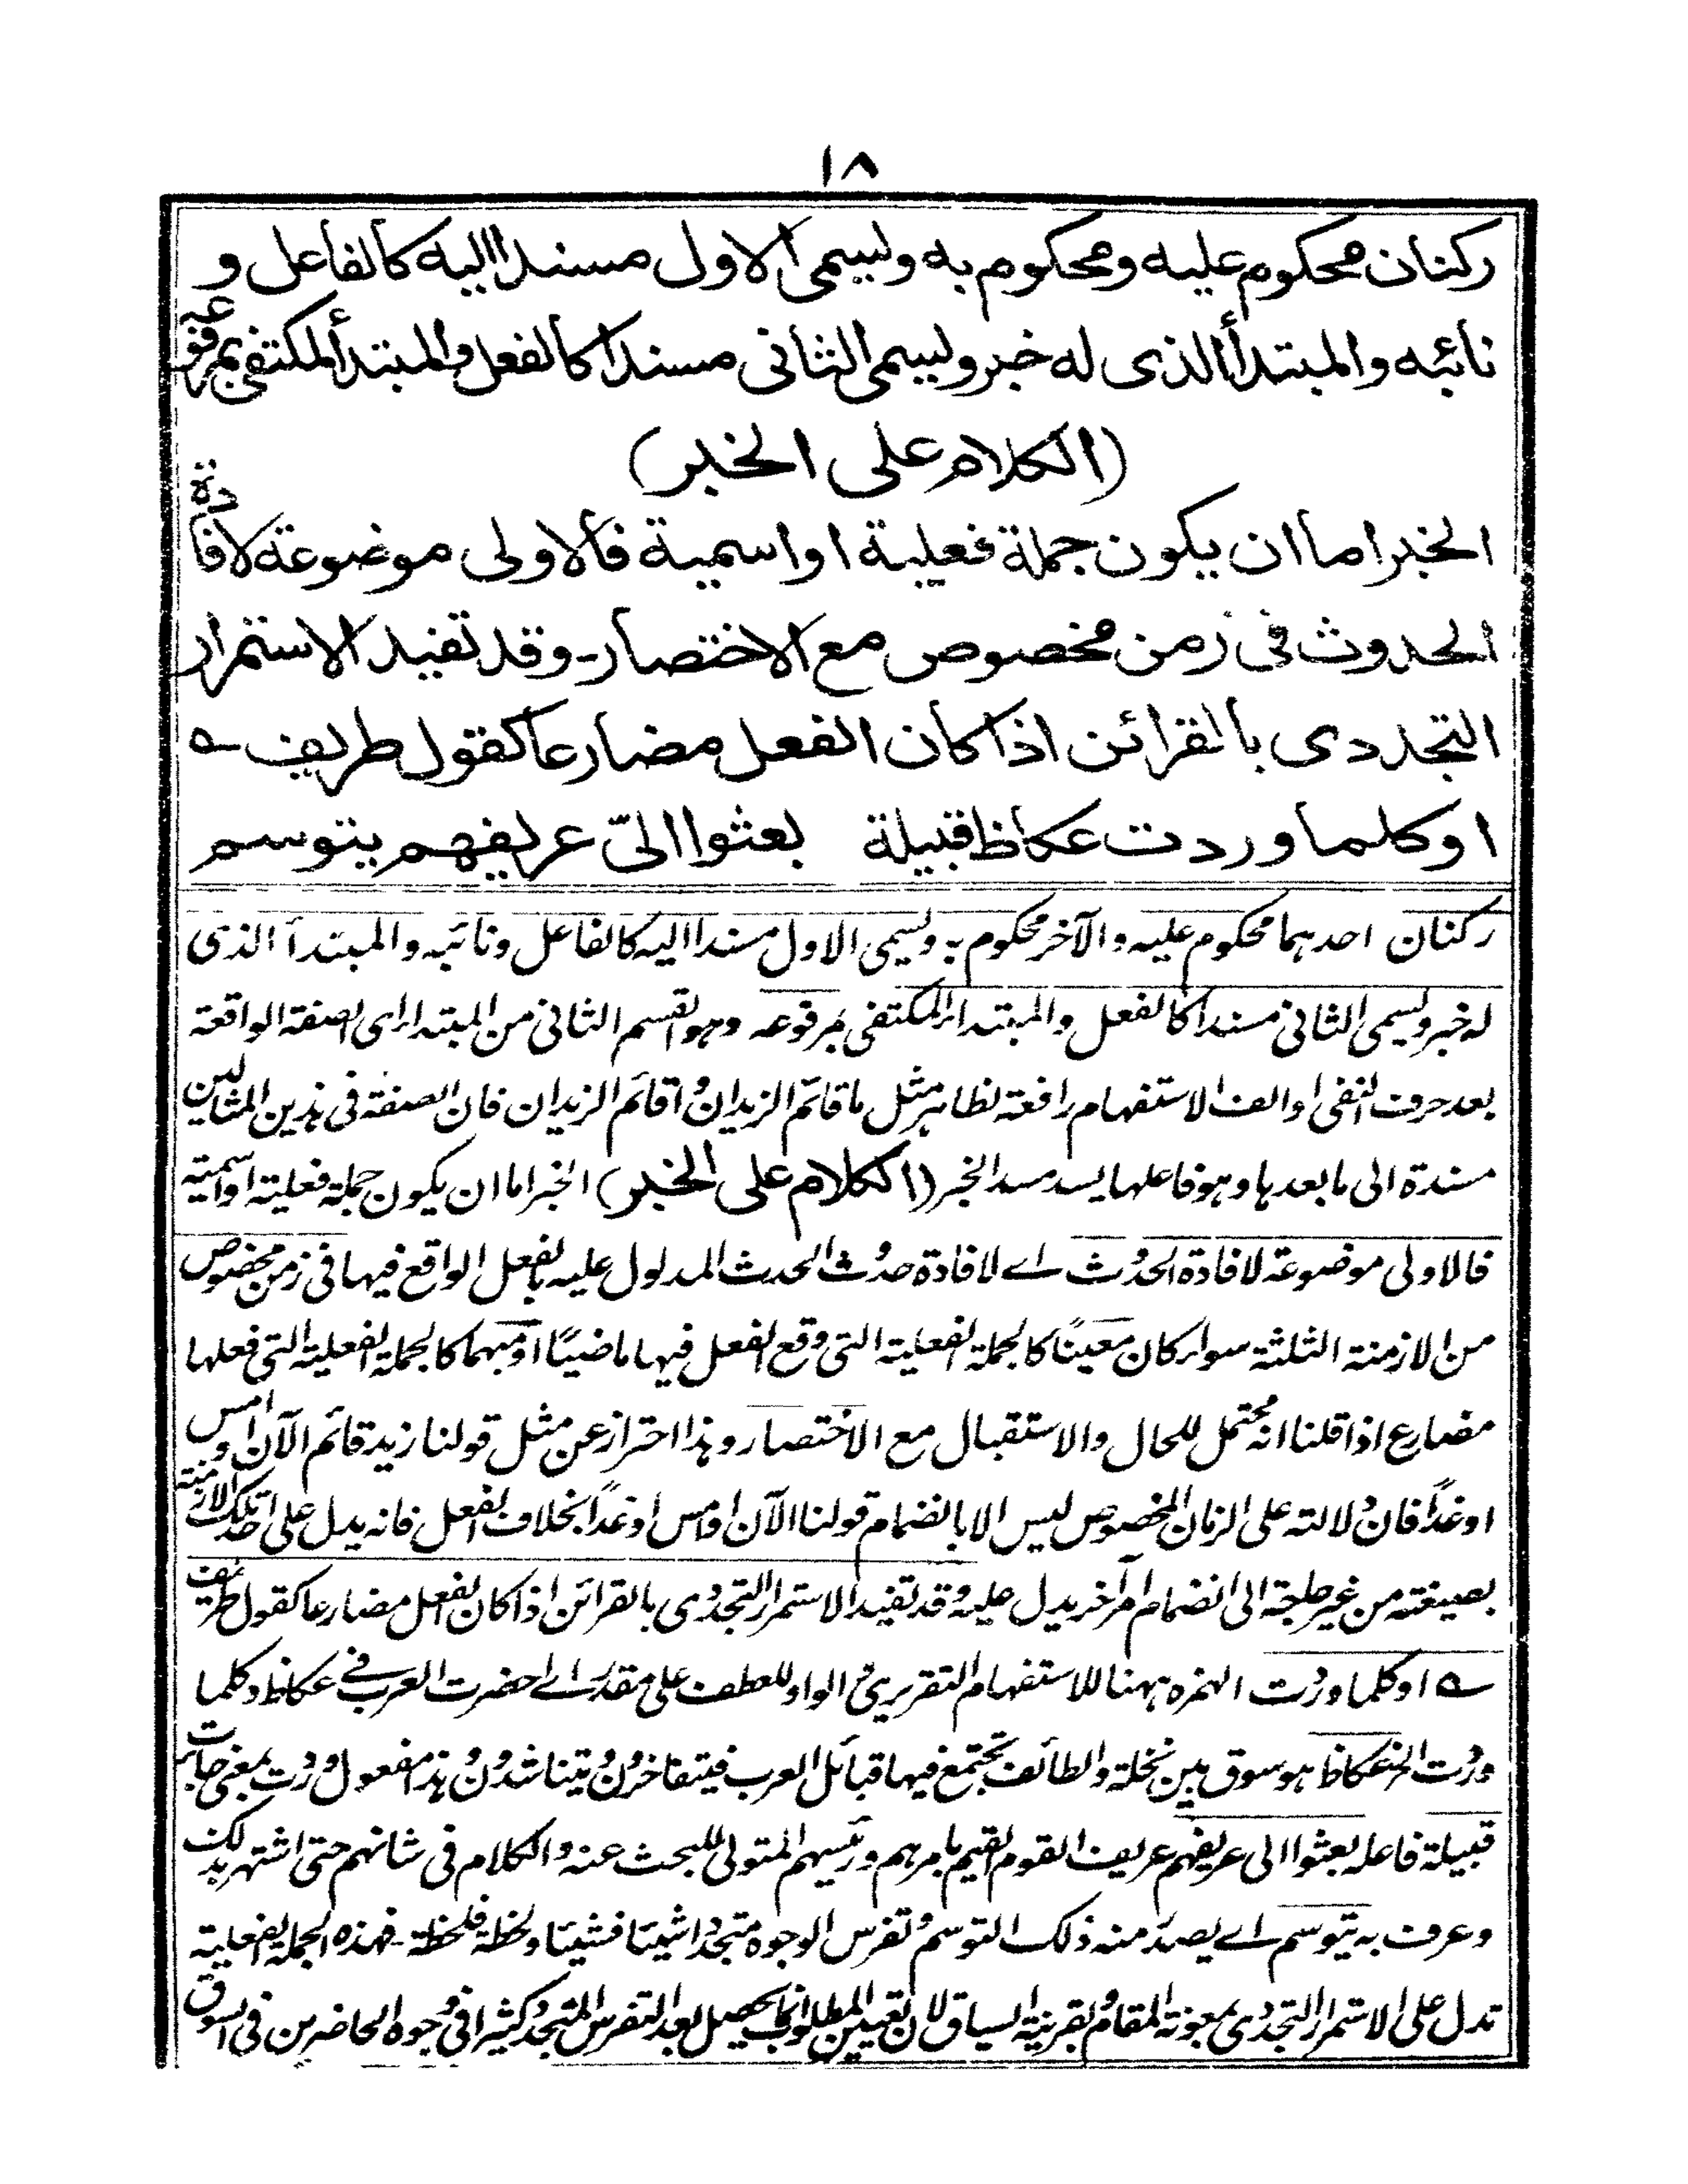 ١٨
ركنان محكوم عليه ومحكوم به ويسمى الاول مسندا اليه كالفاعل و
نائبه والمبتدأ الذى له خبر ويسمى الثانى مسندا كالفعل والمبتدأ المكتفى بمرفوعه
(الكلام على الخبر)
الخبر اما ان يكون جملة فعلية او اسمية فالاولى موضوعة لافادة
الحدوث فى زمن مخصوص مع الاختصار - وقد تفيد الاستمرار
التجددى بالقرائن اذا كان الفعل مضارعا كقول طريف ه
او كلما وردت عكاظ قبيلة بعثوا الىّ عريفهم يتوسم
ركنان احدهما محكوم عليه والآخر محكوم به ويسمى الاول مسندا اليه كالفاعل ونائبه والمبتدأ الذى
له خبر ويسمى الثانى مسندا كالفعل والمبتدأ المكتفى بمرفوعه وهو القسم الثانى من المبتدا اى الصفة الواقعة
بعد حرف النفى او الف الاستفهام رافعة لظاهر مثل ما قائم الزيدان و اقائم الزيدان فان الصفة فى هذين المثالين
مسندة الى ما بعدها وهو فاعلها يسد مسد الخبر (الكلام على الخبر) الخبر اما ان يكون جملة فعلية او اسمية
فالاولى موضوعة لافادة الحدوث اے لافادة حدوث الحدث المدلول عليه بالفعل الواقع فيها فى زمن مخصوص
من الازمنة الثلثة سواء كان معينًا كالجملة الفعلية التى وقع الفعل فيها ماضيًا او مبهما كالجملة الفعلية التى فعلها
مضارع اذا قلنا انه محتمل للحال والاستقبال مع الاختصار وهذا احتراز عن مثل قولنا زيد قائم الآن او امس
او غدًا فان دلالته على الزمان المخصوص ليس الا بانضمام قولنا الآن او امس او غدًا بخلاف الفعل فانه يدل على احد تلك الازمنة
بصيغته من غير حاجة الى انضمام امر آخر يدل عليه وقد تفيد الاستمرار التجددى بالقرائن اذا كان الفعل مضارعا كقول طريف
ه او كلما وردت الهمزه ههنا للاستفهام التقريرى والواو للعطف على مقدر اے احضرت العرب فے عكاظ وكلما
وردت الخ عكاظ هو سوق بين نخلة والطائف تجتمع فيها قبائل العرب فيتفاخرون ويتناشدون وهذا مفعول وردت بمعنى جاءت
قبيلة فاعله بعثوا الى عريفهم عريف القوم القيم بامرهم ورئيسهم المتولى للبحث عنه والكلام فى شانهم حتى اشتهر بذلك
وعرف به يتوسم اے يصدر منه ذلك التوسم وتفرس الوجوه متجددا شيئا فشيئا ولحظة فلحظة - فهذه الجملة الفعلية
تدل على الاستمرار التجددى بمعونة المقام وبقرينة السياق لان تعيين المطلوب انما يحصل بعد التفرس المتجدد كثيرا فى وجوه الحاضرين فى السوق